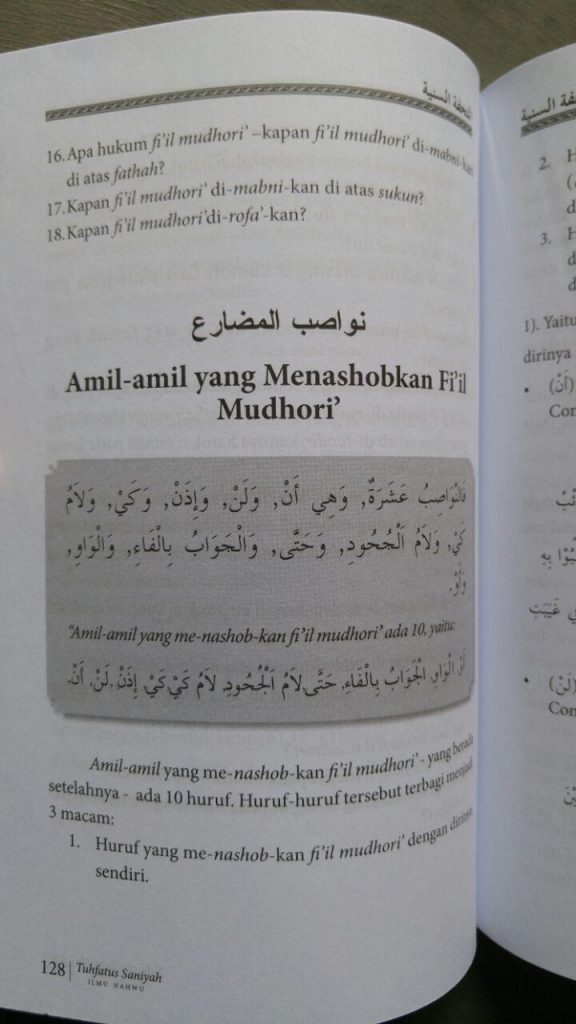 التحفة السنية
16. Apa hukum fi'il mudhori' –kapan fi'il mudhori' di-mabni-kan
di atas fathah?
17. Kapan fi'il mudhori' di-mabni-kan di atas sukun?
18. Kapan fi'il mudhori'di-rofa'-kan?
نواصب المضارع
Amil-amil yang Menashobkan Fi'il
Mudhori'
فَالنَّوَاصِبُ عَشَرَةٌ, وَهِي أَنْ, وَلَنْ, وَإِذَنْ, وَكَيْ, وَلاَمُ
كَيْ, وَلاَمُ اَلْجُحُودِ, وَحَتَّى, وَالْجَوَابُ بِالْفَاءِ, وَالْوَاوِ,
وَأَوْ.
"Amil-amil yang me-nashob-kan fi'il mudhori' ada 10, yaitu:
أَوْ الْوَاوِ, الْجَوَابُ بِالْفَاءِ, حَتَّى لاَمُ اَلْجُحُودِ, لاَمُ كَيْ كَيْ, إِذَنْ, لَنْ, أَنْ.
Amil-amil yang me-nashob-kan fi'il mudhori' - yang berada
setelahnya - ada 10 huruf. Huruf-huruf tersebut terbagi menjadi
3 macam:
1. Huruf yang me-nashob-kan fi'il mudhori' dengan dirinya
sendiri.
128 | Tuhfatus Saniyah
ILMU NAHWU
2. H
3. H
d
1). Yaitu
dirinya
• (أَنْ)
Con
• (لَنْ)
Con